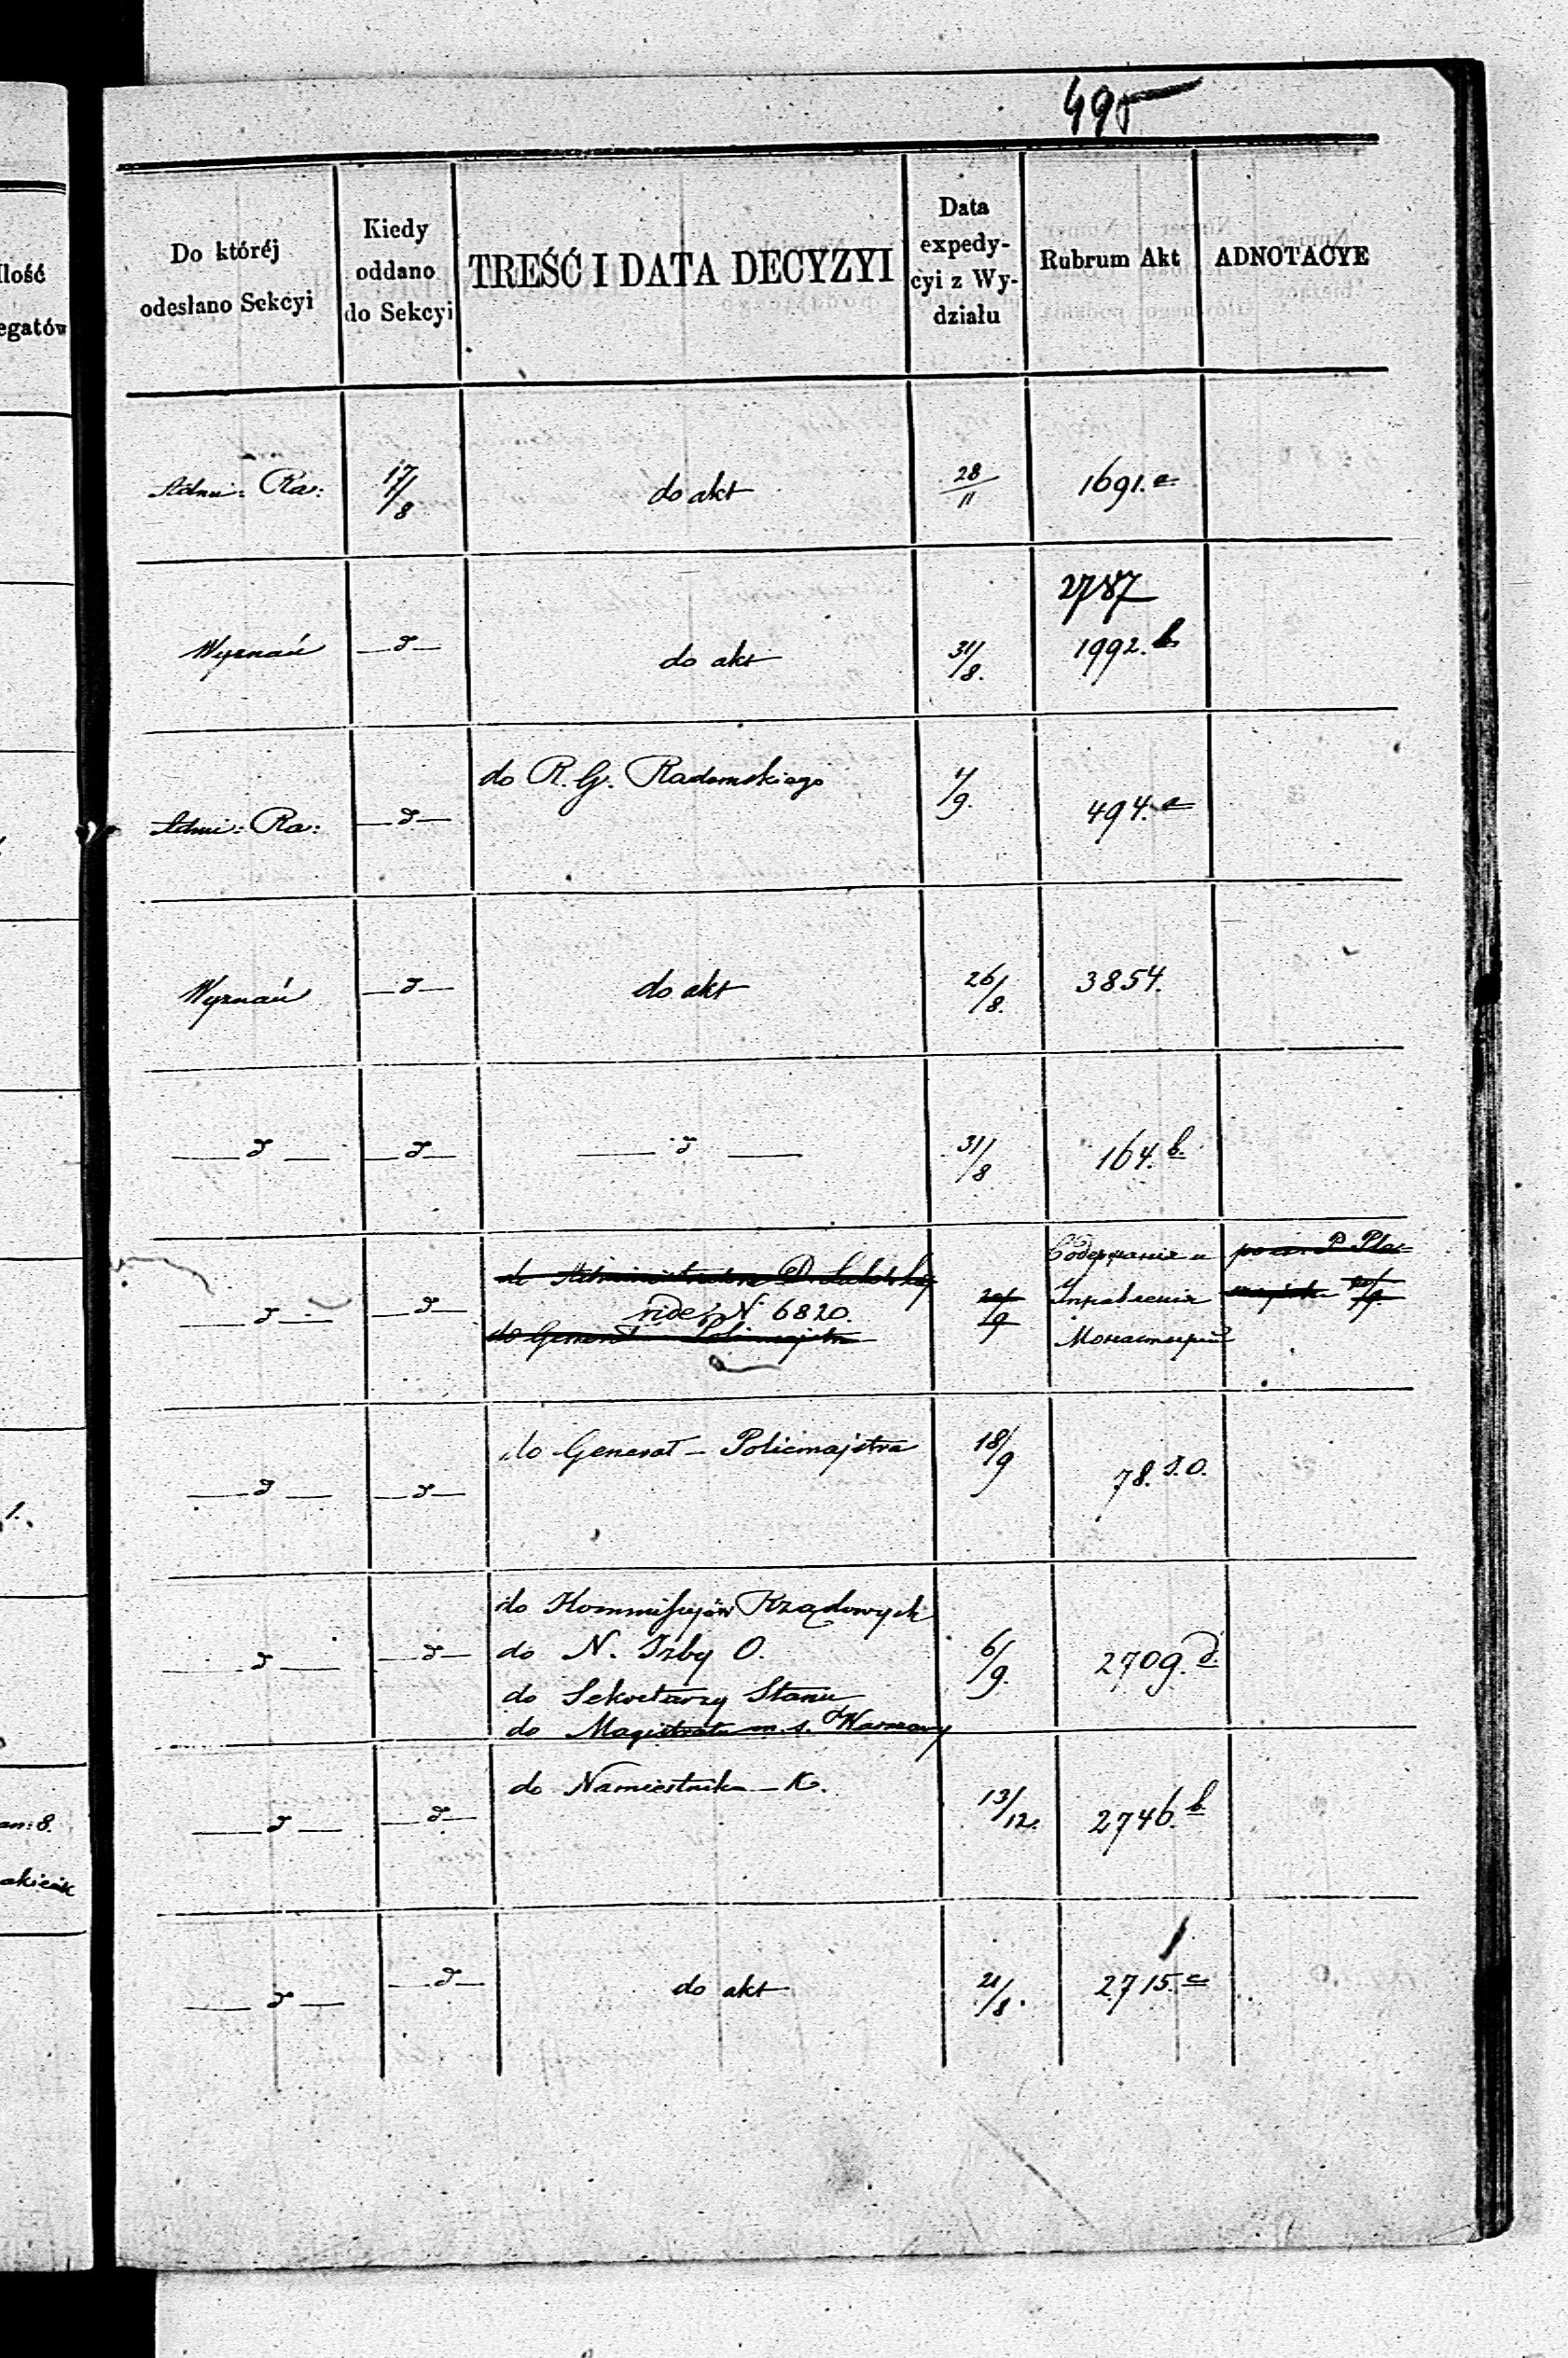 495
Ilość
egatów
Do któréj
odesłano Sekcyi
Kiedy
oddano
do Sekcyi
TREŚĆ I DATA DECYZYI
Data
expedy-
cyi z Wy-
działu
Rubrum Akt
ADNOTACYE
Admi: Ra: 17/8 do akt 28/11 1691.
2787
Wyznań —d— do akt 31/8. 1992. b
do R. G. Radomskiego
Admi: Ra: —d— /9. 494.
Wyznań —d— do akt 26/8. 3854.
—d— —d— —d— 31/8 164. b.
do Administratora
—d— —d— vide N 6820.
do Generał Policmajstra
Содержанія и
Управленія
Монастырей
do Generał – Policmajstra
—d— —d— 18/9 78.
do Kommissyjów Rządowych
do N. Izby O.
—d— —d— 6/9. 2709. d.
do Sekretarzy Stanu
do Magistratu m. s. Warszawy
do Namiestnika – K.
—d— —d— 13/12. 2746. b
—d— —d— do akt 21/8. 2715.
an: 8.